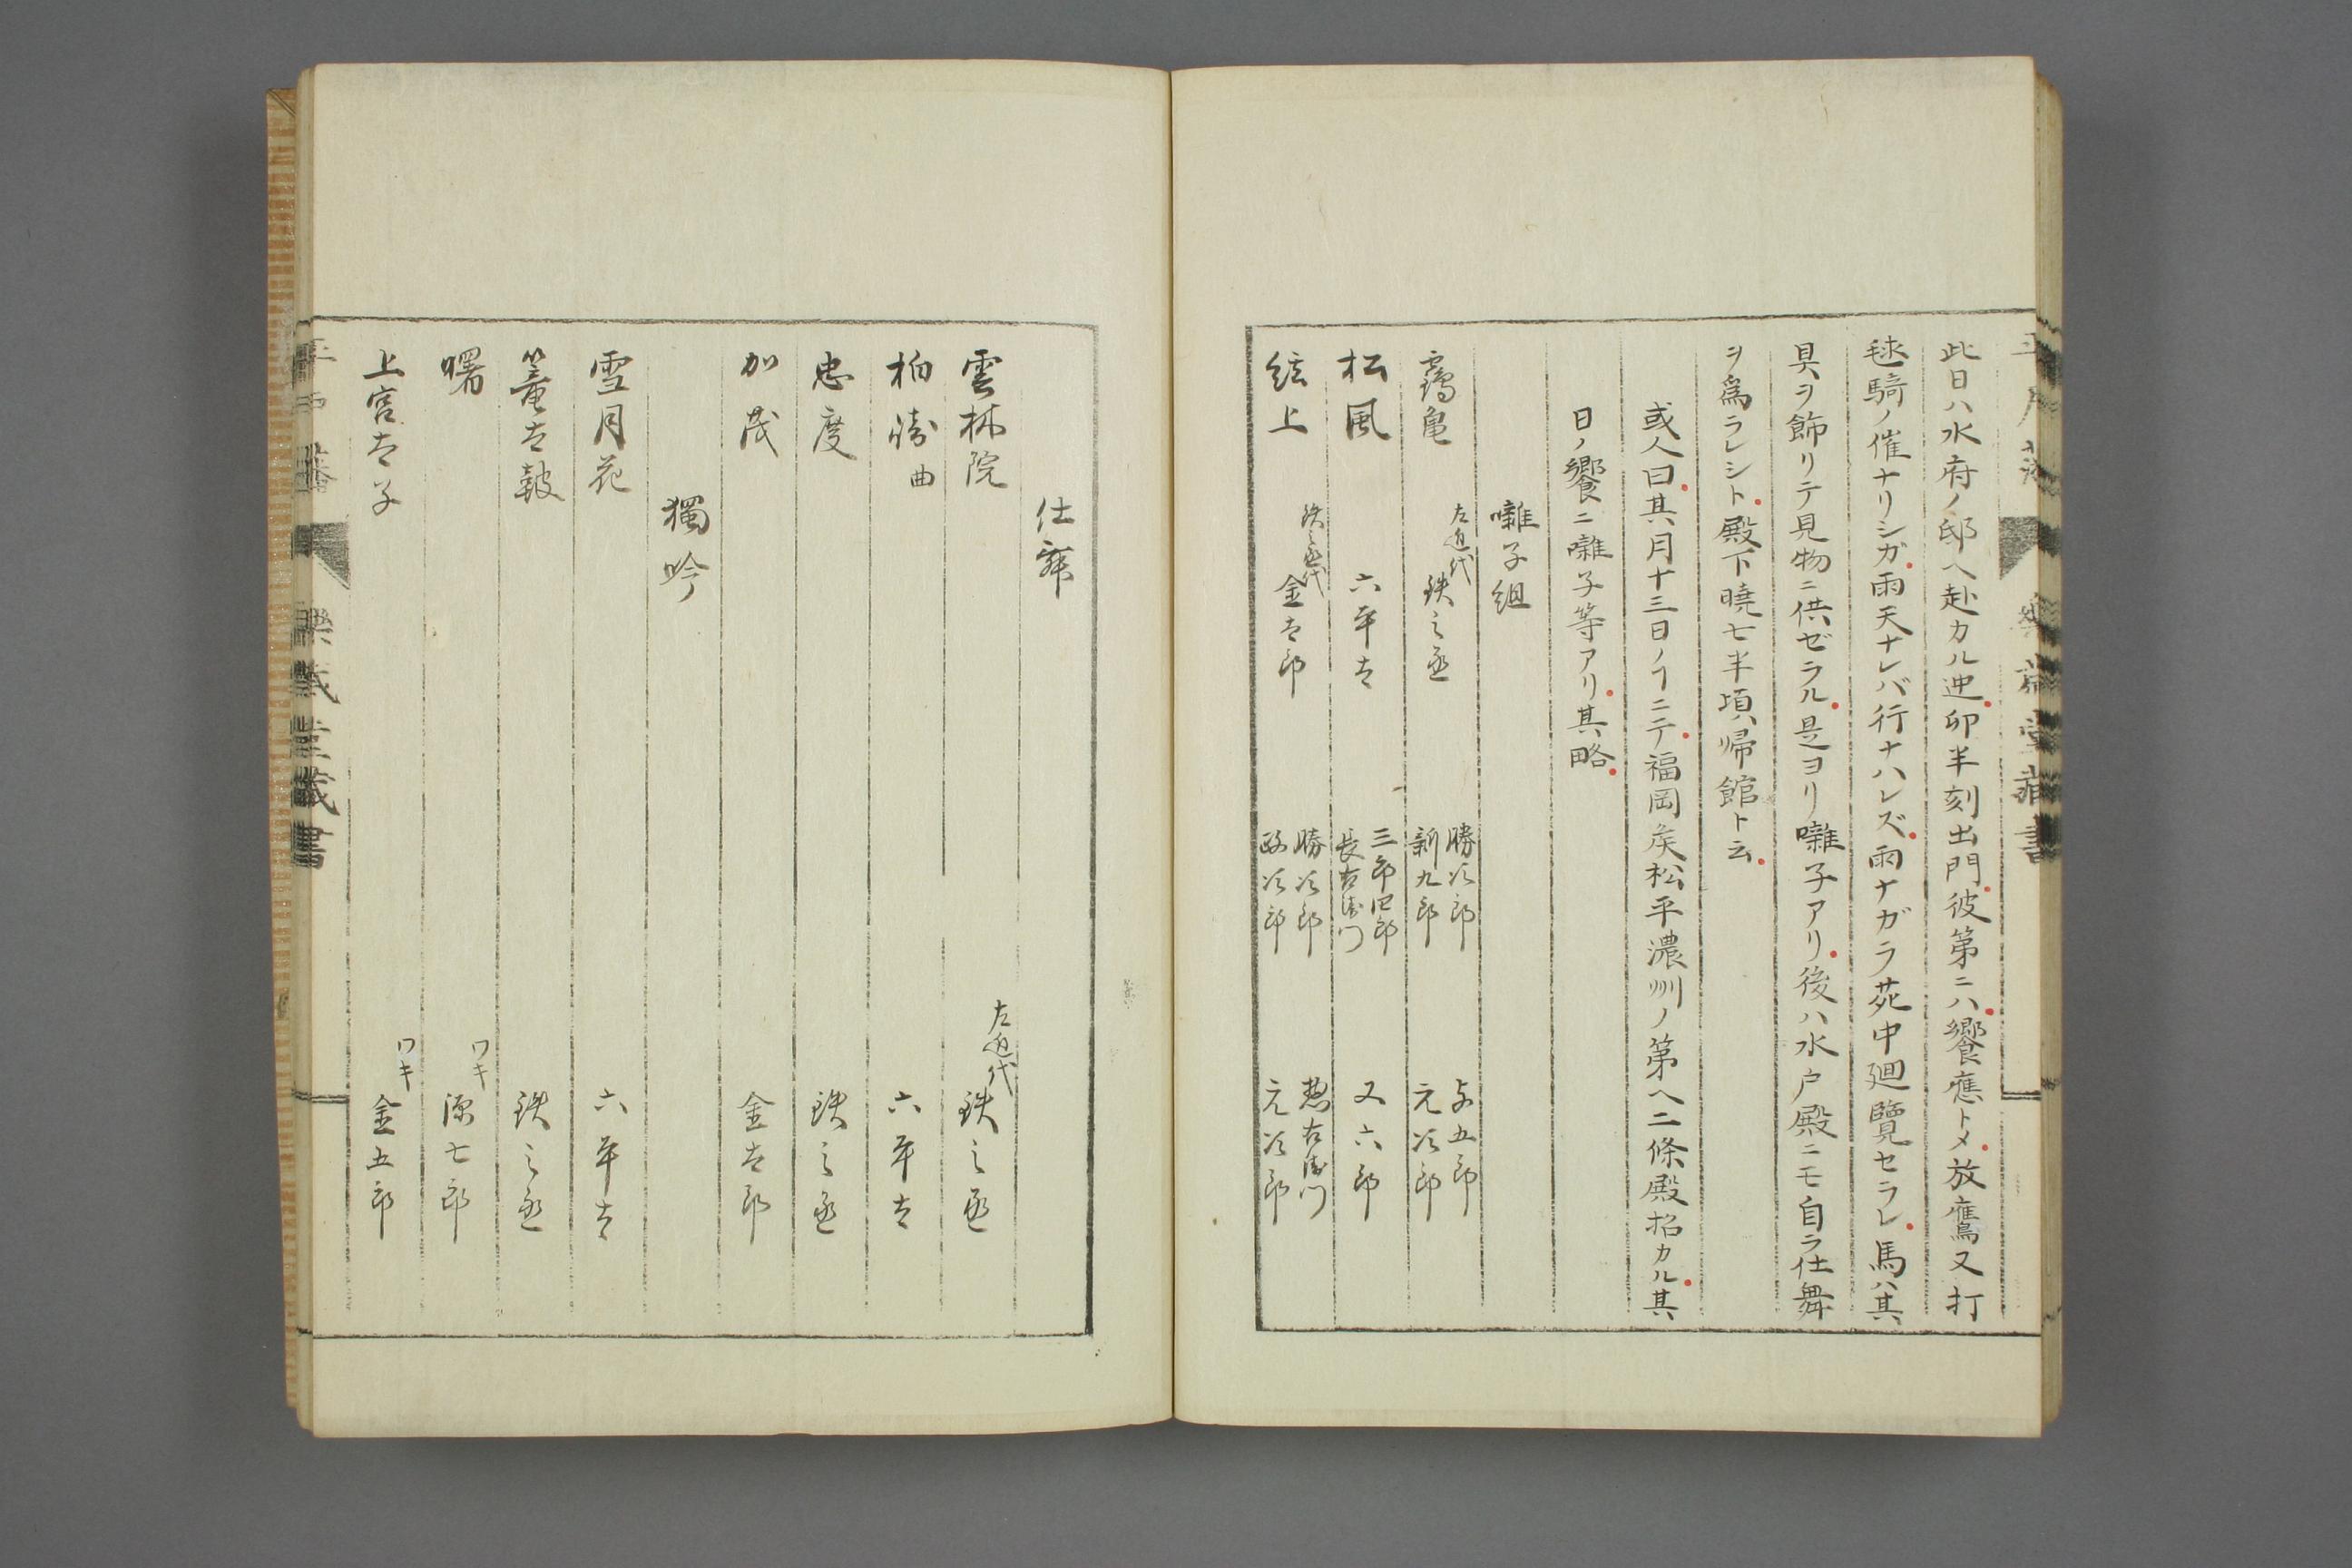 此日ハ水府ノ邸ヘ赴カル迚卯半刻出門彼第ニハ饗應トメ放鷹又打
毬騎ノ催ナリシガ雨天ナレバ行ナハレズ雨ナガラ苑中廻覽セラレ馬ハ其
具ヲ飾リテ見物ニ供ゼラル是ヨリ囃子アリ後ハ水戸殿ニモ自ラ仕舞
ヲ爲ラレシト殿下曉七半頃帰館ト云
或人曰其月十三日ノ丁ニテ福岡矦松平濃州ノ第ヘ二條殿招カル其
日ノ饗ニ囃子等アリ其略
囃子組
鶴亀 左近代 鉄之丞 勝次郎 新九郎 与五郎 元次郎
松風 六平太 三郎四郎 長右衛門 又六郎
絃上 鉄之丞代 金太郎 勝次郎 政次郎 惣右衛門 元次郎
仕舞
雲林院 左近代 鉄之丞
柏崎 曲 六平太
忠度 鉄之丞
加茂 金太郎
獨吟
雪月花 六平太
篭太鼓 鉄之丞
曙 ワキ 源七郎
上宮太子 ワキ 金五郎
平戸藩 樂歳堂藏書